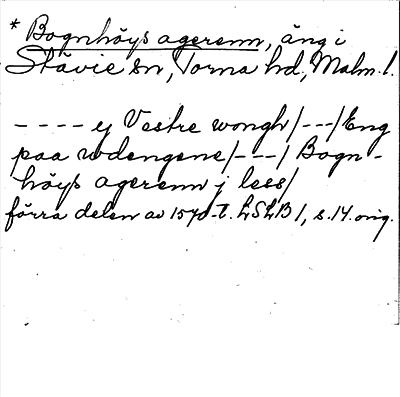 * Bognhöys agerenn, äng i
Stävie sn, Torna hd, Malm. l.
- - - - ej Vestre wongh/---/Eng
paa rodengene/---/ Bogn-
höys agerenn j less/
förra delen av 1570-t. LSLB 1, s. 14. orig.